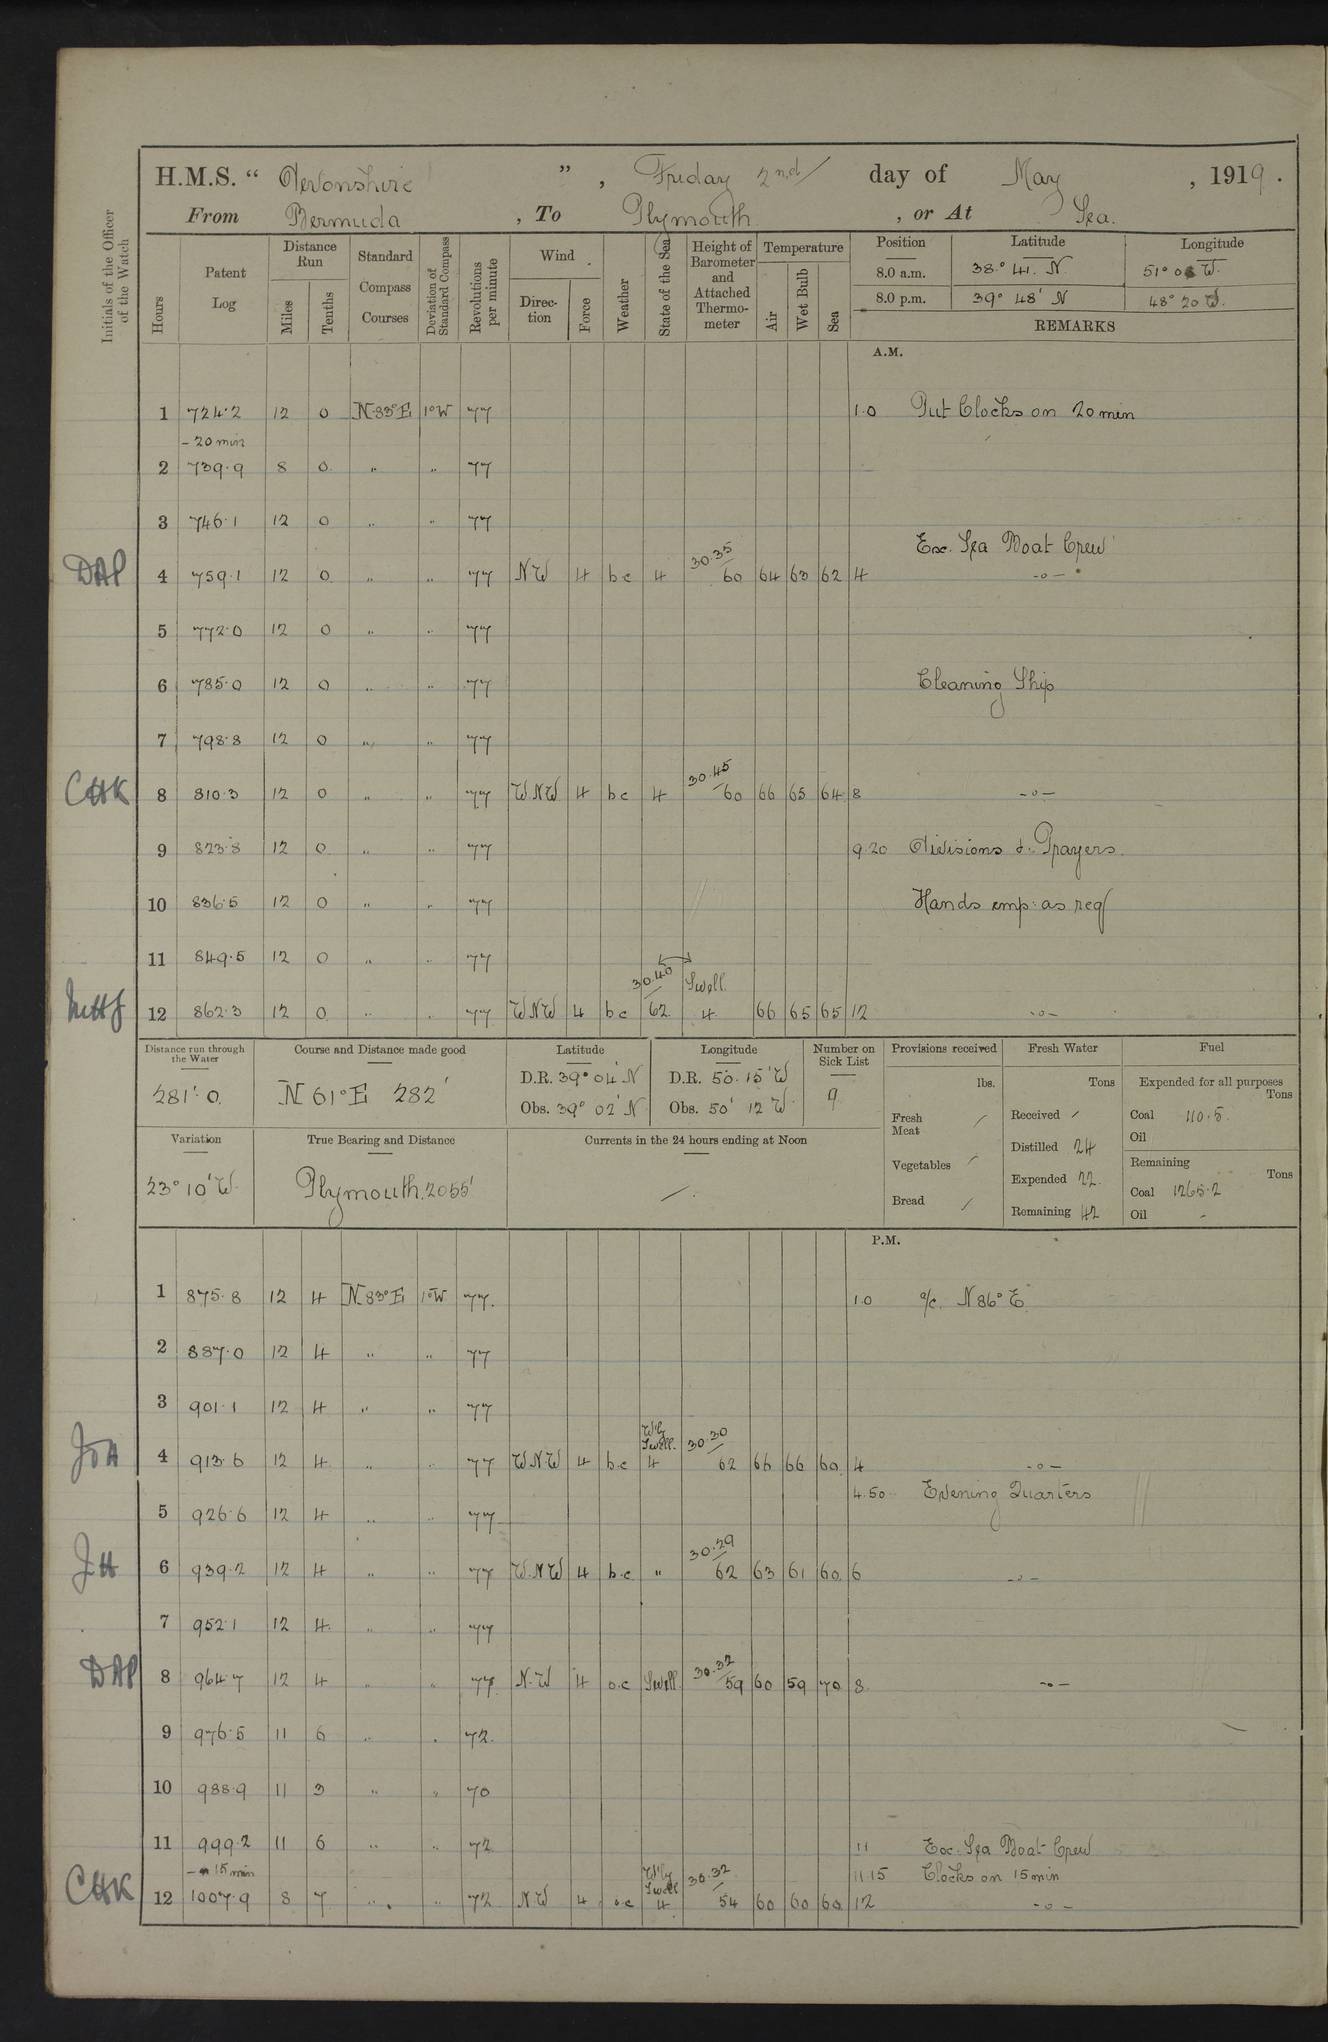 H.M.S. “ Devonshire ” , Friday 2nd day of May , 1919 .
From Bermuda , To Plymouth , or At Sea.
Initials of the Officer of the Watch
Hours
Patent Log
Distance Run
Miles
Tenths
Standard Compass Courses
Deviation of Standard Compass
Revolutions per minute
Wind
Direc-tion
Force
Weather
State of the Sea
Height of Barometer and Attached Thermo-meter
Temperature
Air
Wet Bulb
Sea
Position Latitude Longitude
8.0 a.m. 38° 41. N 51° 0 W.
8.0 p.m. 39° 48' N 48° 20 W.
REMARKS
A.M.
1 724.2 12 0 N 83° E 1° W 77 1.0 Put Clocks on 20 min
- 20 min
2 739.9 8 0 " " 77
3 746.1 12 0 " " 77
Ex. Sea Boat Crew
DAP 4 759.1 12 0 " " 77 NW 4 bc 4 30.35 60 64 63 62 4 -o-
5 772.0 12 0 " " 77
6 785.0 12 0 " " 77 Cleaning Ship
7 798.8 12 0 " " 77
CHK 8 810.3 12 0 " " 77 W.NW 4 bc 4 30.45 60 66 65 64 8 -o-
9 823.8 12 0 " " 77 9.20 Divisions & Prayers.
10 836.5 12 0 " " 77 Hands emp: as req
11 849.5 12 0 " " 77
12 862.3 12 0 " " 77 WNW 4 bc 30.40 62 Swell. 4 66 65 65 12 -o-
Distance run through the Water
281'.0
Course and Distance made good
N 61° E 282'
Latitude
D.R. 39° 04' N
Obs. 39° 02' N
Longitude
D.R. 50. 15' W
Obs. 50' 12 W
Number on Sick List
9
Provisions received
lbs.
Fresh Meat /
Vegetables /
Bread /
Fresh Water
Tons
Received /
Distilled 24
Expended 22.
Remaining 42
Fuel
Expended for all purposes
Tons
Coal 110.5.
Oil
Remaining
Tons
Coal 1265.2
Oil -
Variation
23° 10' W.
True Bearing and Distance
Plymouth. 2055'
Currents in the 24 hours ending at Noon
/.
P.M.
1 875.8 12 4 N 83° E 1° W 77. 1.0 a/c. N 86° E
2 887.0 12 4 " " 77
3 901.1 12 4 " " 77
4 913.6 12 4 " " 77 WNW 4 b.c W'ly Swell. 4 30.30 62 66 66 60 4 -o-
4.50 Evening Quarters
5 926.6 12 4 " " 77
JH 6 939.2 12 4 " " 77 W.NW 4 b.c. " 30.29 62 63 61 60 6 -o-
7 952.1 12 4 " " 77
DAP 8 964.7 12 4 " " 77 N.W 4 o.c Swell. 30.32 59 60 59 70 8. -o-
9 976.5 11 6 " " 72.
10 988.9 11 3 " " 70
11 999.2 11 6 " " 72 11 Exc. Sea Boat Crew
- 15 min 11 15 Clocks on 15 min
CHK 12 1007.9 8 7 " " 72 NW 4 o.c W'ly Swell 4 30.32 54 60 60 60 12 -o-